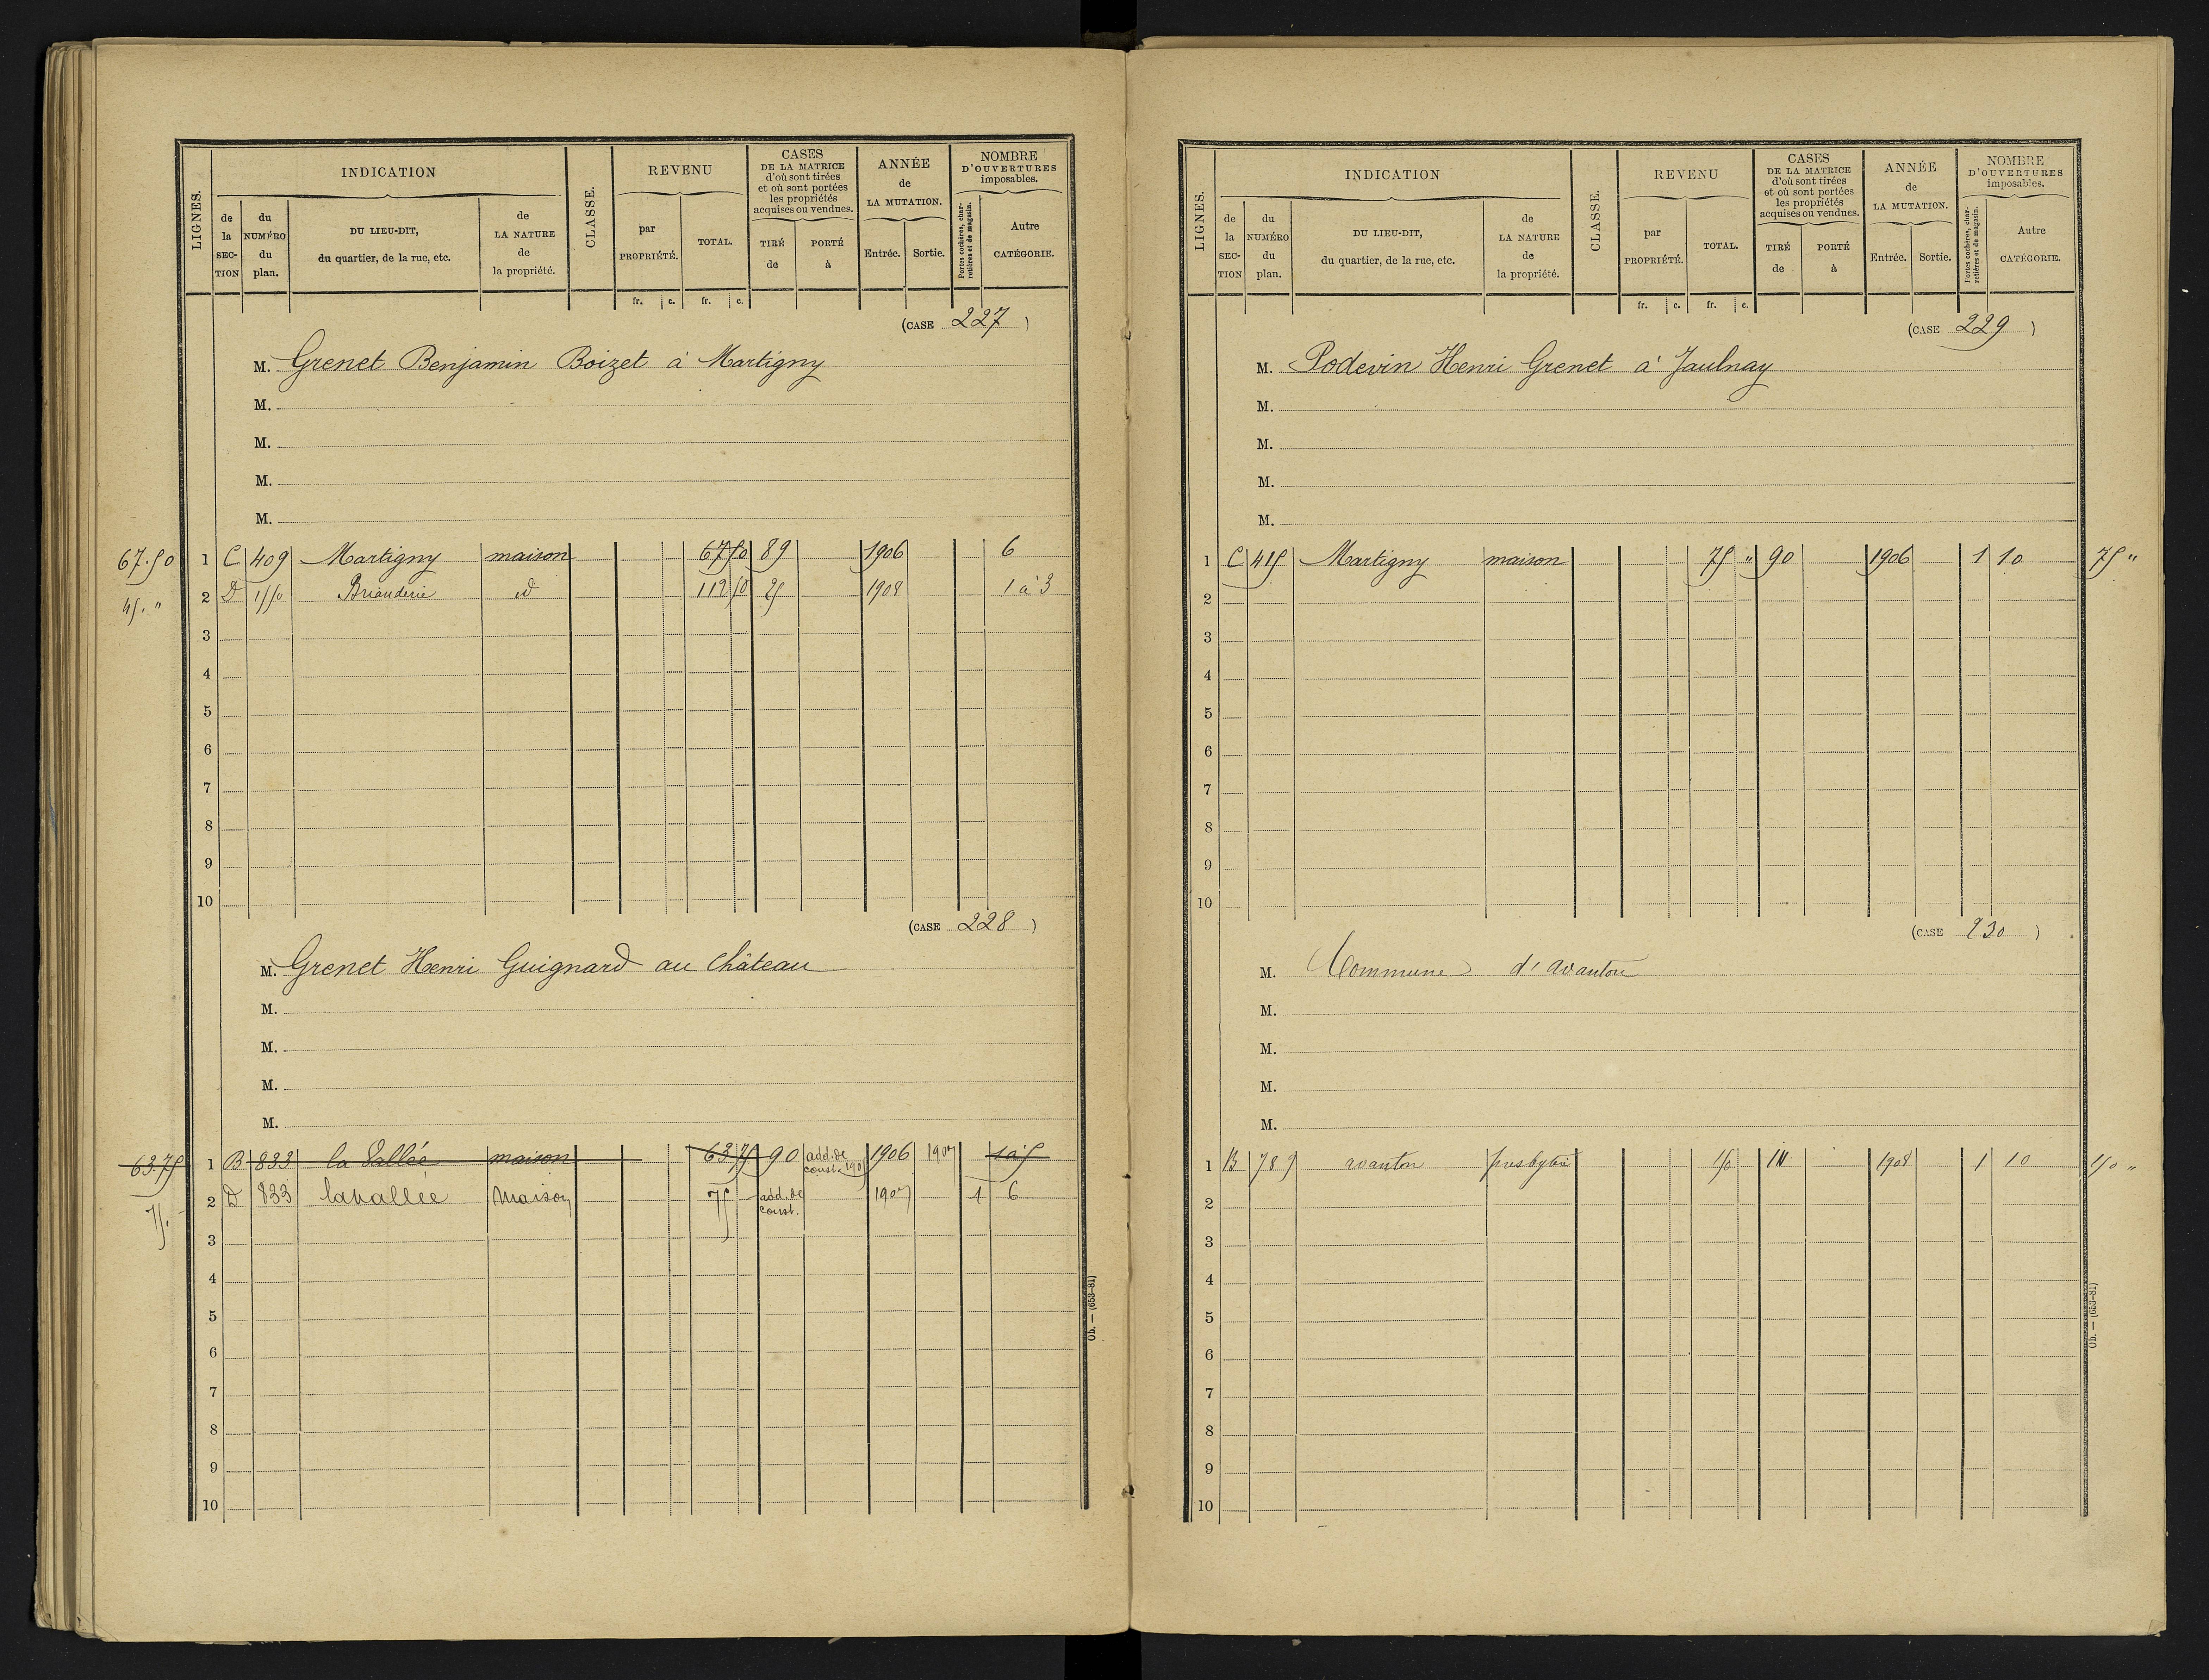 LIGNES. INDICATION CLASSE. REVENU CASES DE LA MATRICE d'où sont tirées et où sont portées les propriétés acquises ou vendues. ANNÉE de LA MUTATION. NOMBRE D'OUVERTURES imposables.
de la SECTION du NUMÉRO du plan. DU LIEU-DIT, du quartier, de la rue, etc. de LA NATURE de la propriété. par PROPRIÉTÉ. TOTAL. TIRÉ de PORTÉ à Entrée. Sortie. Portes cochères, charretières et de magasin. Autre CATÉGORIE.
fr. c. fr. c.
(CASE 227 )
M. Grenet Benjamin Boizet à Martigny
M.
M.
M.
M.
67.50 1 C 409 Martigny maison 67 50 89 1906 6
45. " 2 D 1550 Briauderie id 112 50 25 1908 1 à 3
3
4
5
6
7
8
9
10
(CASE 228 )
M. Grenet Henri Guignard au Château
M.
M.
M.
M.
63.75 1 B 833 la Vallée maison 63 75 90 add. de const. 190 1906 1907 1 à 5
75. 2 D 833 lavallée Maison 75 add. de const. 1907 1 6
3
4
5
6
7
8
9
10
Ob. — (653-81)
LIGNES. INDICATION CLASSE. REVENU CASES DE LA MATRICE d'où sont tirées et où sont portées les propriétés acquises ou vendues. ANNÉE de LA MUTATION. NOMBRE D'OUVERTURES imposables.
de la SECTION du NUMÉRO du plan. DU LIEU-DIT, du quartier, de la rue, etc. de LA NATURE de la propriété. par PROPRIÉTÉ. TOTAL. TIRÉ de PORTÉ à Entrée. Sortie. Portes cochères, charretières et de magasin. Autre CATÉGORIE.
fr. c. fr. c.
(CASE 229 )
M. Podevin Henri Grenet à Jaulnay
M.
M.
M.
M.
1 C 415 Martigny maison 75 " 90 1906 1 10 75 "
2
3
4
5
6
7
8
9
10
(CASE 230 )
M. Commune d'avanton
M.
M.
M.
M.
1 B 789 avanton presbytère 150 1908 1 10 150 "
2
3
4
5
6
7
8
9
10
Ob. — (653-81)